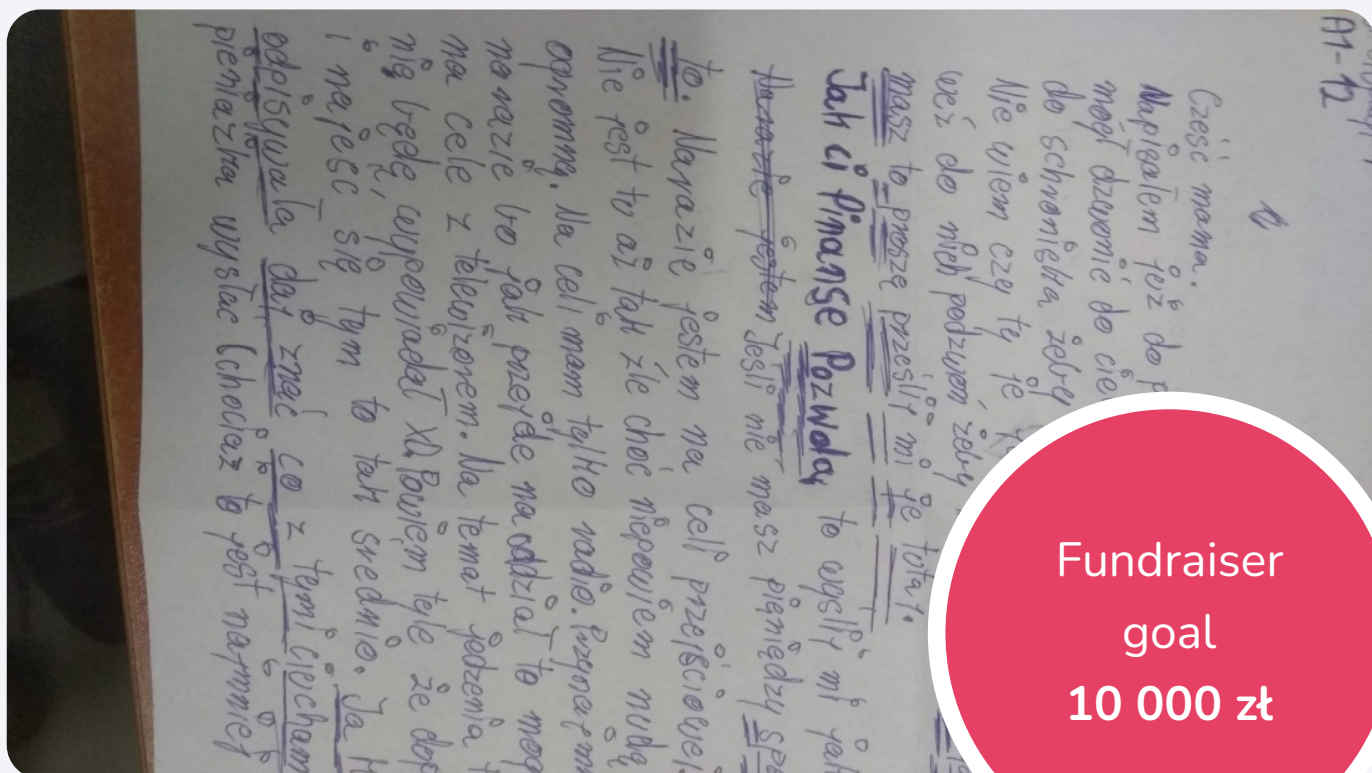 A1-12
Cześć mama.
Napisałem już do p
mógł dzwonić do cie
do schroniska żeby
Nie wiem czy ty je
weź do nich podzwoń żeby
masz to proszę prześlij mi je tutaj.
Jak ci finanse Pozwolą to wyślij mi jak
Narazie jestem Jeśli nie masz pieniędzy spo
to. Narazie jestem na celi przejściowej
Nie jest to aż tak źle choć niepowiem nudę
ogromną. Na celi mam tylko radio.
narazie bo jak przejde na oddział to mog
ma cele z telewizorem. Na temat jedzenia
nie będę wypowiadał xD Powiem tyle że dop
i najeść się tym to tak srednio. Ja
odpisywała dać znać co z tymi ciucham
pieniążka wysłac (chociaż to jest najmniej
Fundraiser
goal
10 000 zł